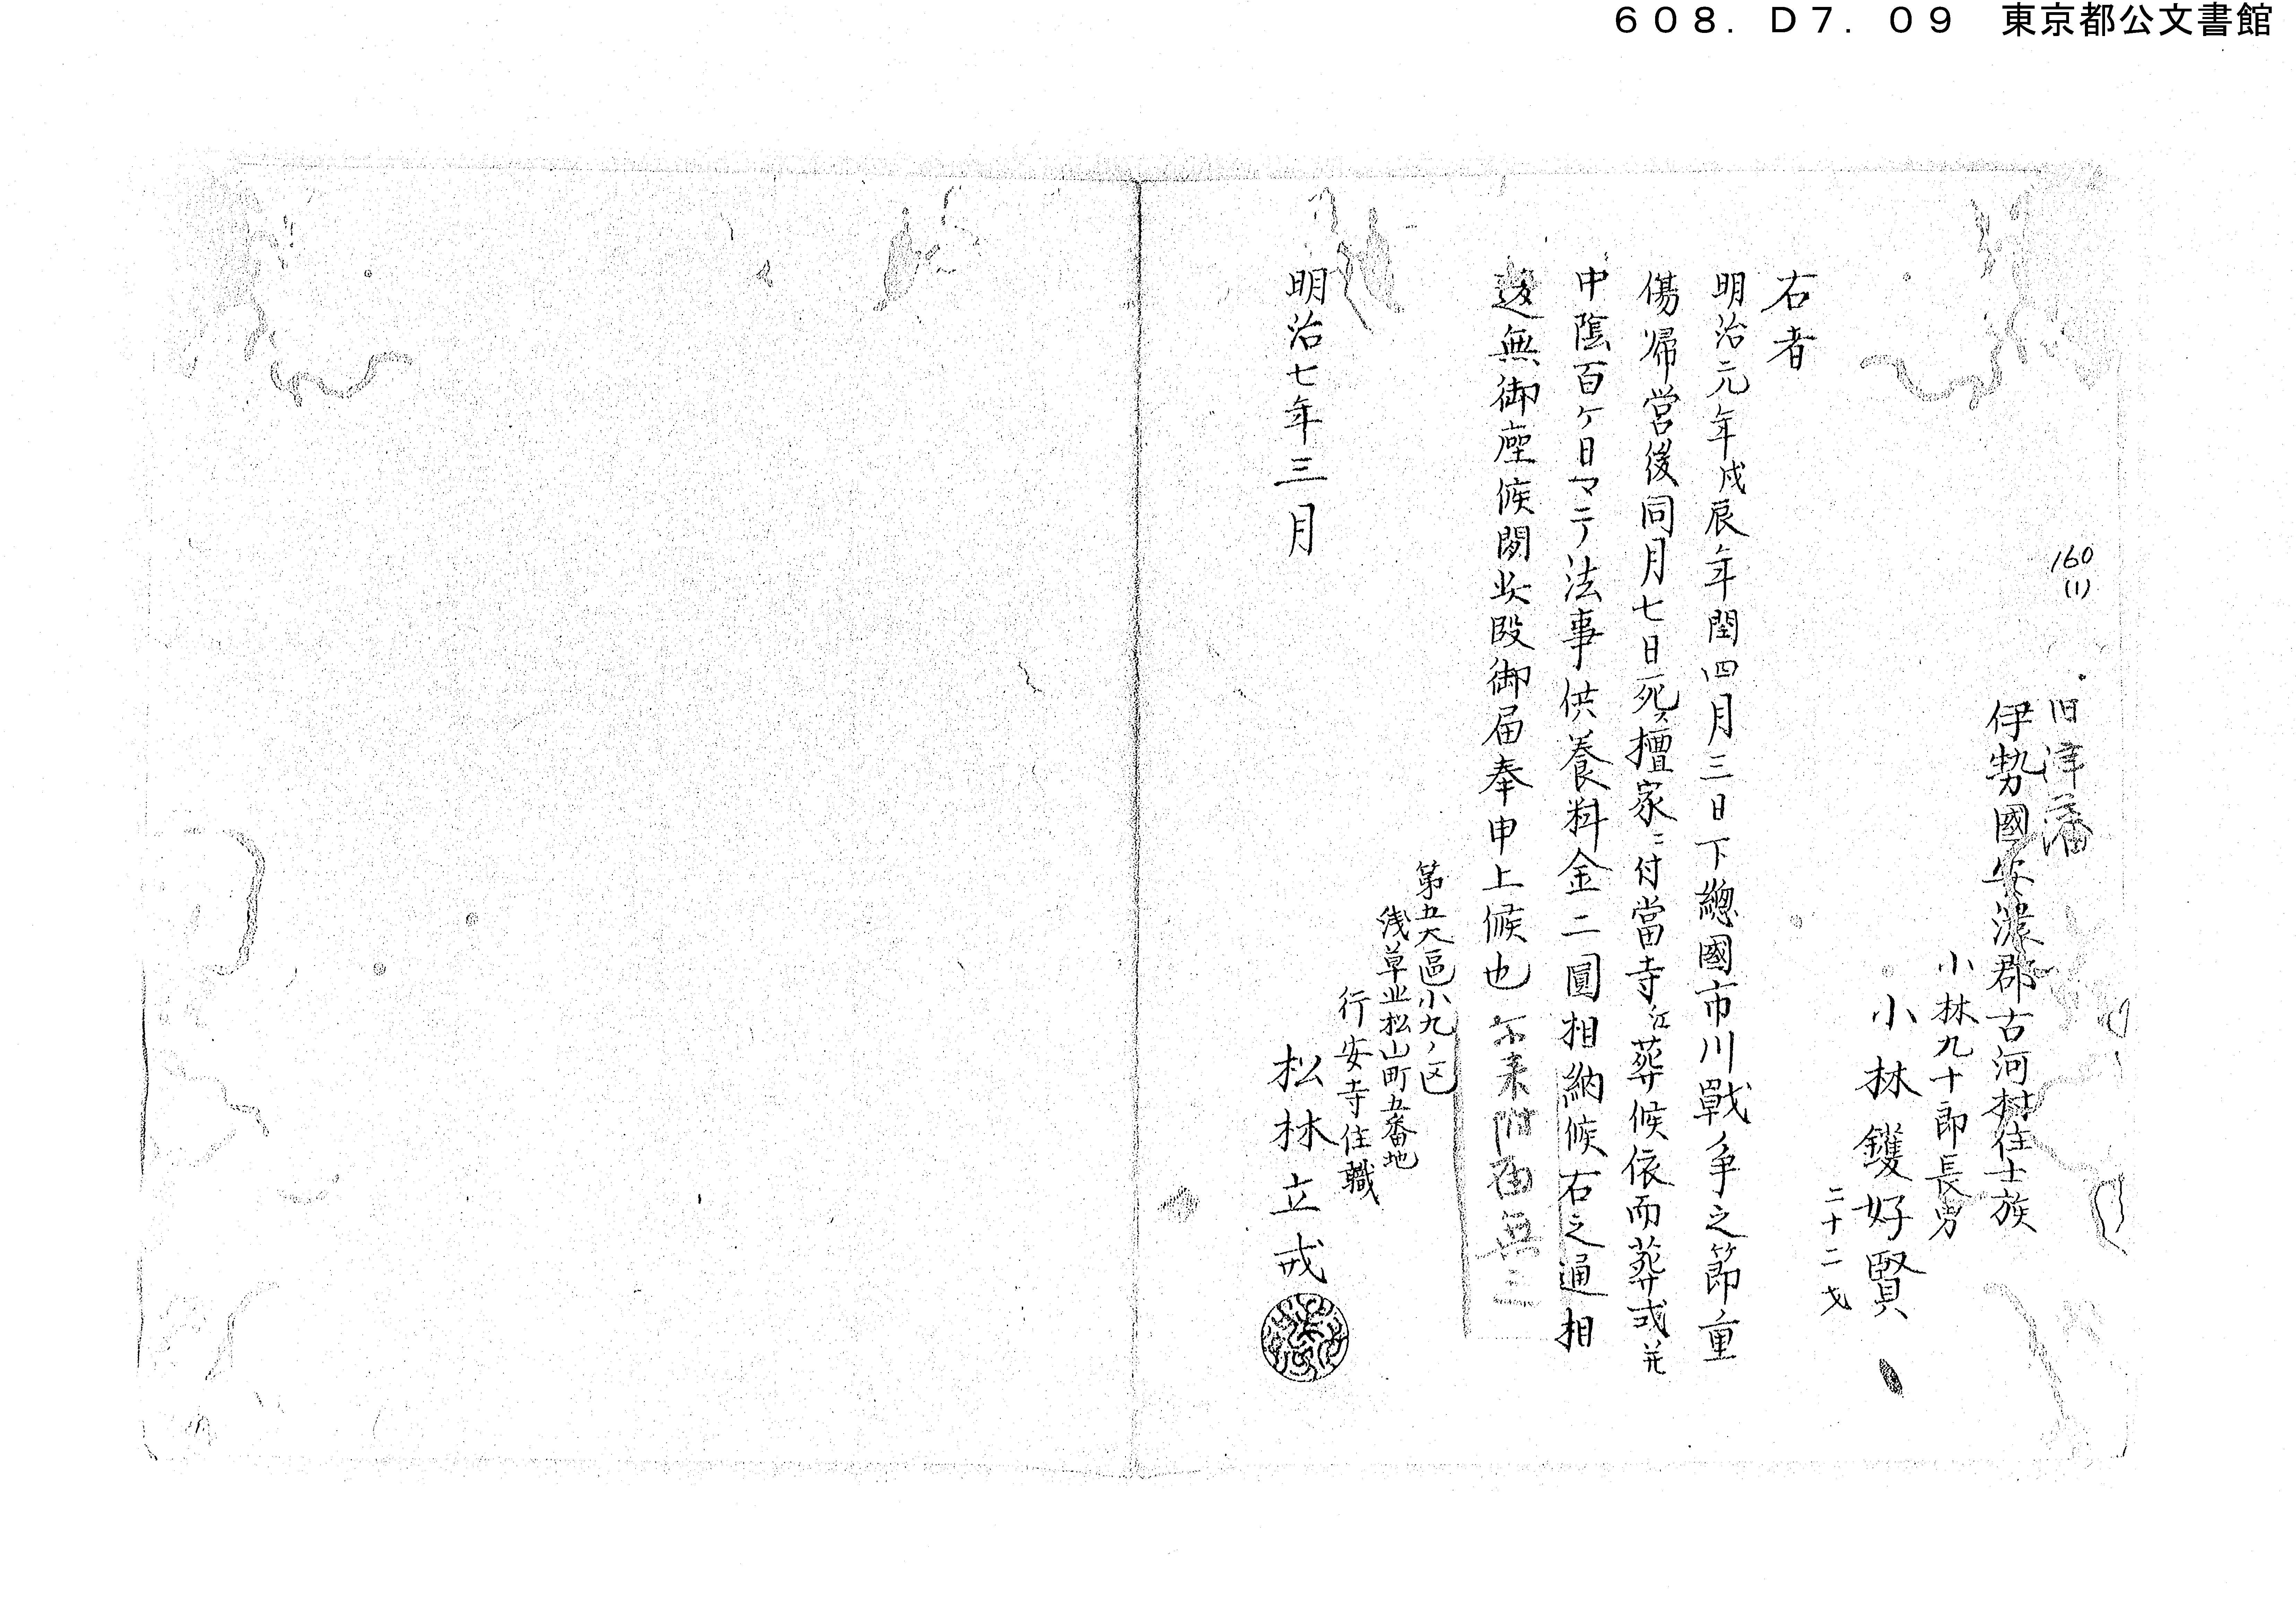 608.D7.09 東京都公文書館
160
(1)
旧津藩
伊勢國安濃郡古河村住士族
小林九十郎長男
小林鑊好賢
二十二才
右者
明治元年戊辰年閏四月三日下總國市川戰争之節重
傷帰営後同月七日死ス檀家ニ付當寺江葬候依而葬式并
中陰百ケ日マテノ法事供養料金二圓相納候右之通相
違無御座候間此段御届奉申上候也
第五大區小九ノ区
浅草北松山町五番地
行安寺住職
松林立戒
明治七年三月